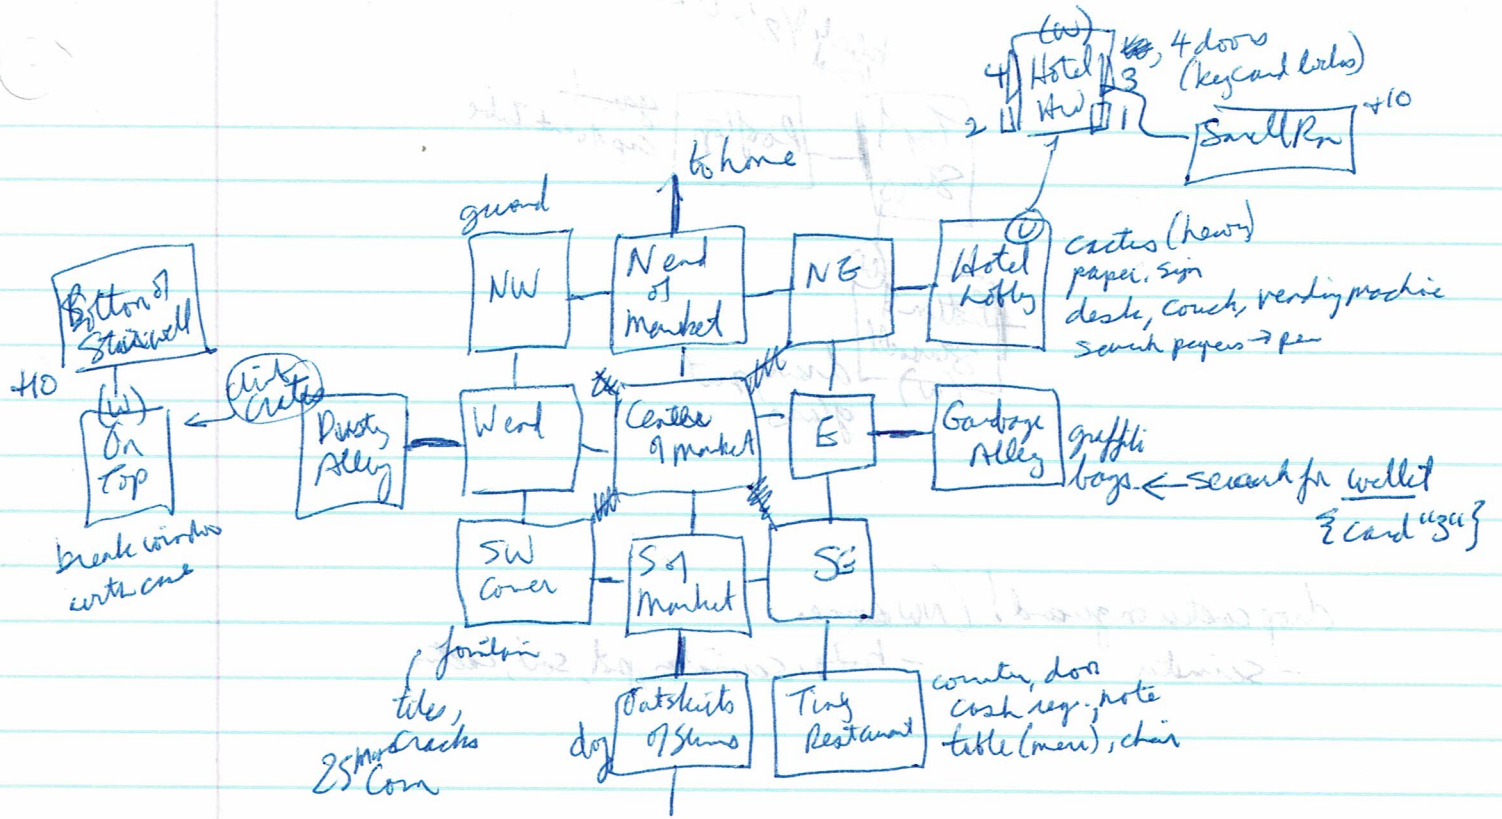 (W)
Hotel
HW
4
3
2
1
, 4 doors
(keycard locks)
Small Rm
+10
to home
guard
NW
N end
of
Market
NE
(U)
Hotel
Lobby
cactus (heavy)
paper, sign
desk, couch, vending machine
search papers → pen
Bottom of
Stairwell
+10
(W)
On
Top
break window
with cane
climb
crates
Dusty
Alley
W end
Center
of market
E
Garbage
Alley
graffiti
bags ← search for wallet
{card "3"}
SW
Corner
S of
Market
SE
fountain
tiles,
cracks
25
Coin
dog
Outskirts
of Slums
Tiny
Restaurant
counter, door
cash reg., note
table (menu), chair